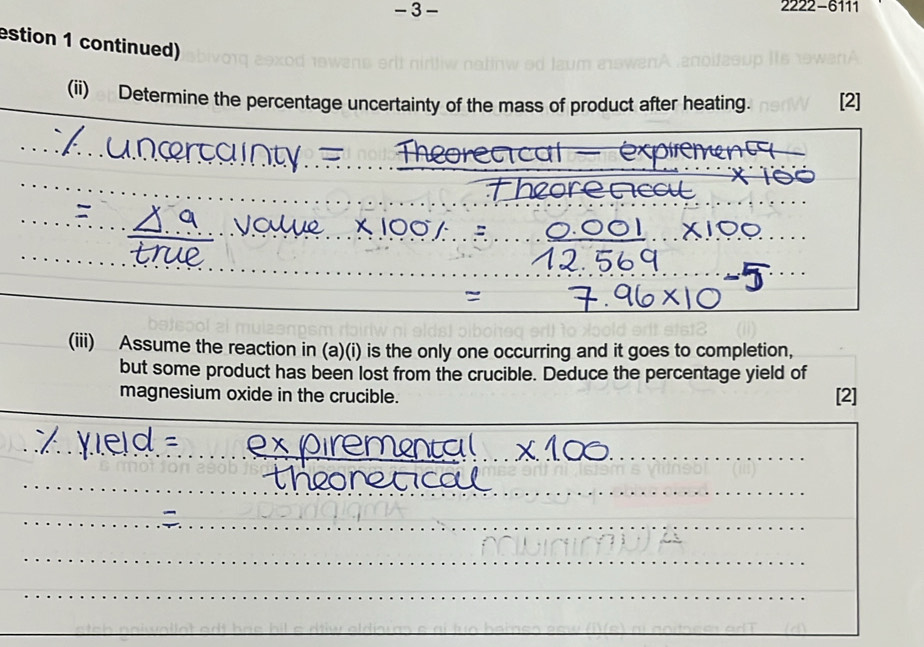 – 3 –
2222–6111
estion 1 continued)
(ii) Determine the percentage uncertainty of the mass of product after heating. [2]
% uncertainty = Theoretical – expirementa
Theoretical × 100
= Δ a value ×100% = 0.001 ×100
true 12.569
= 7.96×10⁻⁵
(iii) Assume the reaction in (a)(i) is the only one occurring and it goes to completion,
but some product has been lost from the crucible. Deduce the percentage yield of
magnesium oxide in the crucible. [2]
% yield = expiremental ×100
theoretical
=